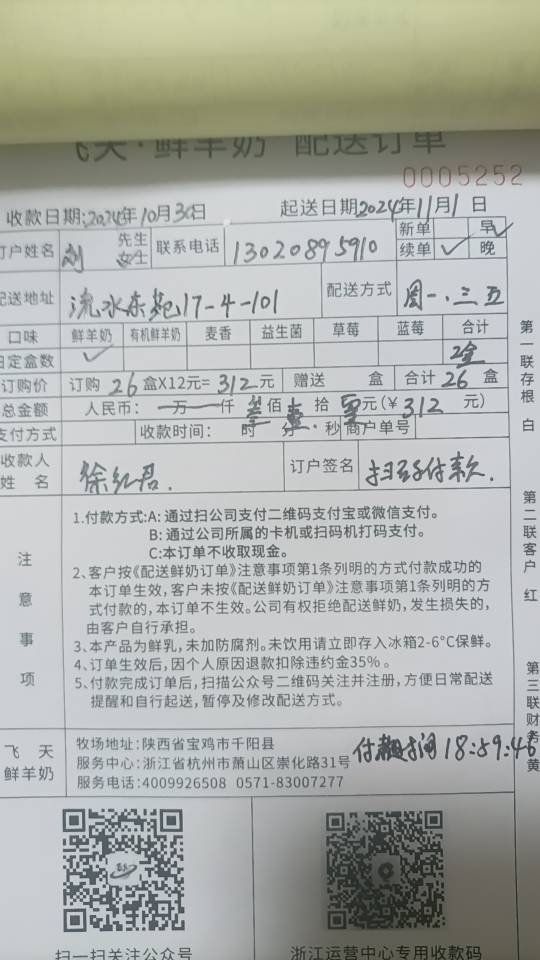 飞天·鲜羊奶 配送订单
0005252
收款日期:2024年10月30日 起送日期2024年11月1日
订户姓名 刘 先生 女士 联系电话 13020895910 新单 早✓
续单 ✓ 晚
配送地址 流水东苑17-4-101 配送方式 周一.三五
口味 鲜羊奶 有机鲜羊奶 麦香 益生菌 草莓 蓝莓 合计
日定盒数 ✓ 2盒
订购价 订购 26 盒X12元= 312 元 赠送 盒 合计 26 盒
总金额 人民币: 万 仟 叁佰 壹拾 元(¥ 312 元)
支付方式 收款时间: 时 分 秒 商户单号
收款人姓名 徐红君. 订户签名 扫码付款.
注意事项
1.付款方式:A: 通过扫公司支付二维码支付宝或微信支付。
B: 通过公司所属的卡机或扫码机打码支付。
C:本订单不收取现金。
2、客户按《配送鲜奶订单》注意事项第1条列明的方式付款成功的
本订单生效,客户未按《配送鲜奶订单》注意事项第1条列明的方
式付款的,本订单不生效。公司有权拒绝配送鲜奶,发生损失的,
由客户自行承担。
3、本产品为鲜乳,未加防腐剂。未饮用请立即存入冰箱2-6°C保鲜。
4、订单生效后,因个人原因退款扣除违约金35%。
5、付款完成订单后,扫描公众号二维码关注并注册,方便日常配送
提醒和自行起送,暂停及修改配送方式。
飞天鲜羊奶
牧场地址:陕西省宝鸡市千阳县
服务中心:浙江省杭州市萧山区崇化路31号
服务电话:4009926508 0571-83007277
付款时间 18:59:46
扫一扫关注公众号 浙江运营中心专用收款码
第一联存根 白
第二联客户 红
第三联财务 黄